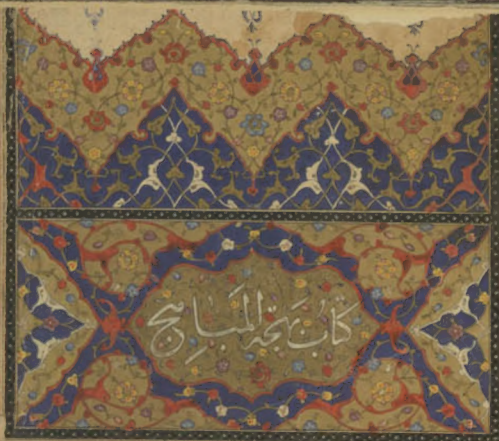 كتاب بهجة المباهج